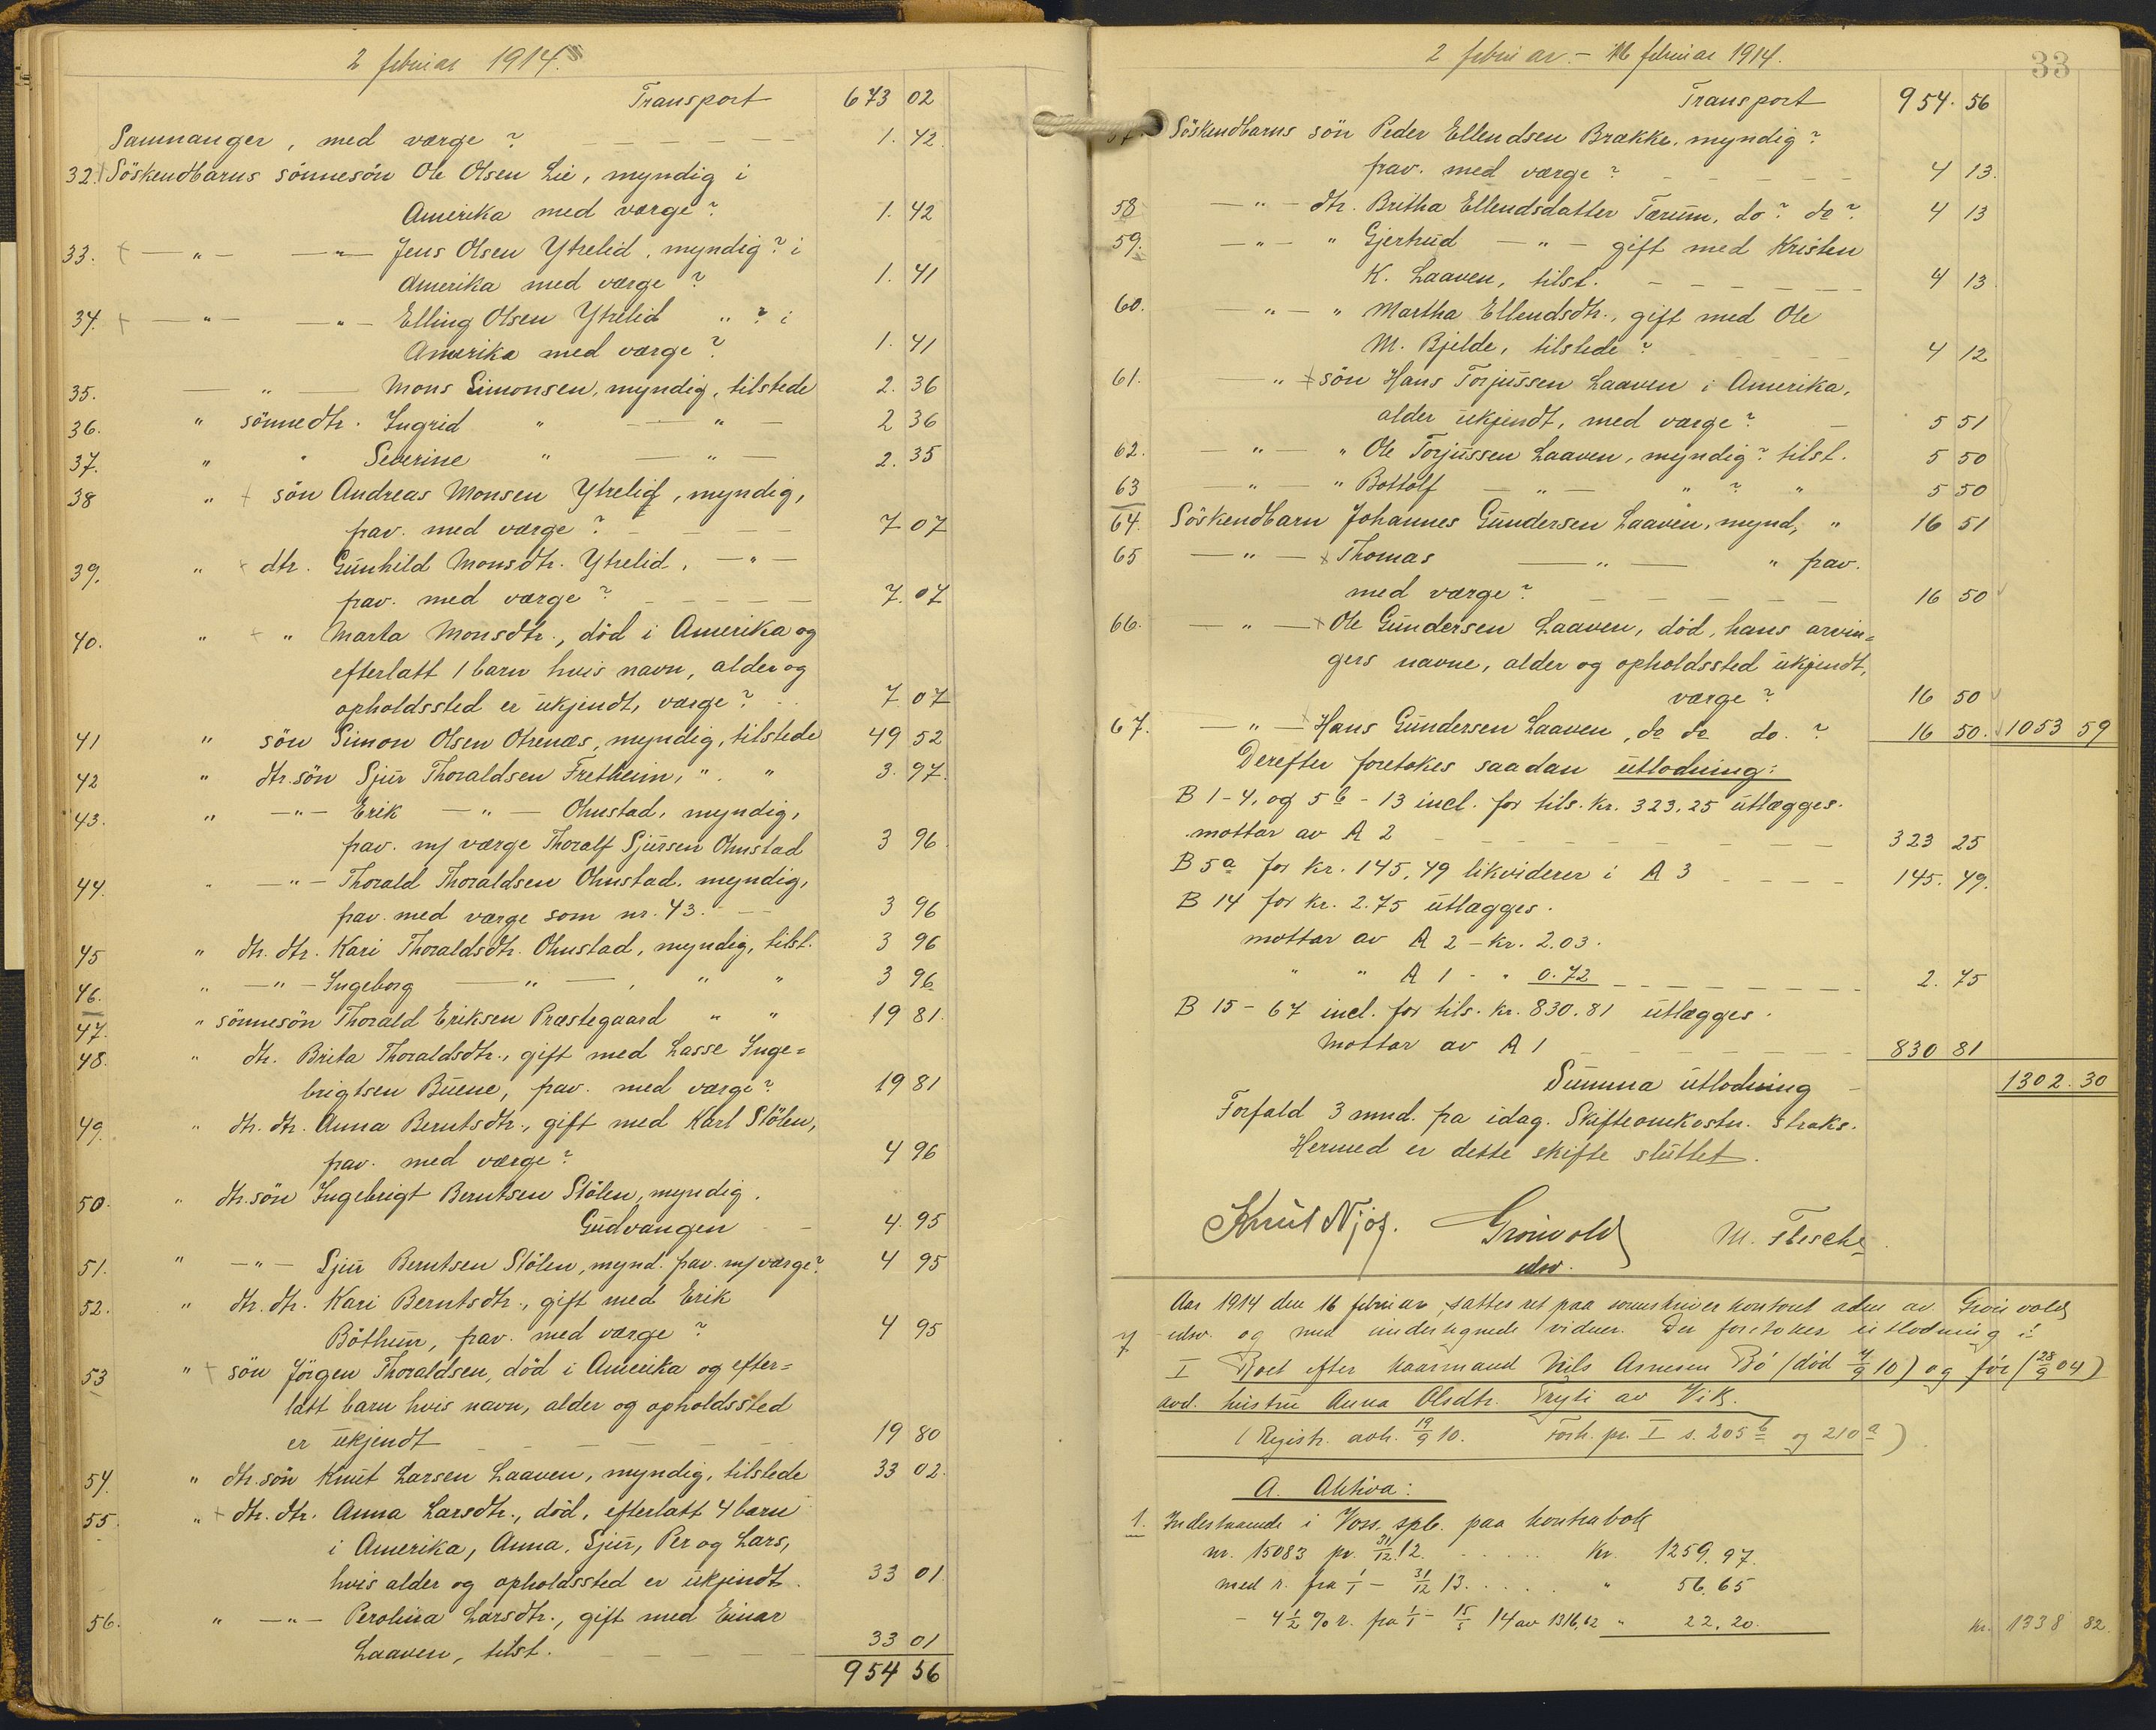 2 februar 1914.
Transport 673 02
Samnanger, med værge? 1. 42.
32. Söskendbarns sönnesön Ole Olsen Lie, myndig i
Amerika med værge? 1. 42
33. + — " — — " — Jens Olsen Ytrelid, myndig? i
Amerika med værge? 1. 41
34. + — " — — " — Elling Olsen Ytrelid " ? i
Amerika med værge? 1. 41
35. — " — Mons Simonsen, myndig, tilstede 2. 36
36. " sönnedtr. Ingrid " — " — 2 36
37. " " Severine " — " — 2. 35
38 " + sön Andreas Monsen Ytrelid, myndig,
frav. med værge? 7. 07
39. " + dtr. Gunhild Monsdtr. Ytrelid, — " —
frav. med værge? 7. 07
40. " + " Marta Monsdtr., död i Amerika og
efterlatt 1 barn hvis navn, alder og
opholdssted er ukjendt, værge? 7 07
41 " sön Simon Olsen Otrenæs, myndig, tilstede 49 52
42 " dtr.sön Sjur Thoraldsen Fretheim, " . " 3. 97.
43. " — " — Erik — " — Ohnstad, myndig,
frav. m/ værge Thoralf Sjursen Ohnstad 3 96.
44. " — " — Thorald Thoraldsen Ohnstad. myndig,
frav. med værge som nr. 43. 3 96
45 " dtr. dtr. Kari Thoraldsdtr. Ohnstad, myndig, tilst. 3 96
46. " — " — Ingeborg — " — , " " 3 96
47. " sönnesön Thorald Eriksen Præstegaard " " 19 81.
48. " dtr. Brita Thoraldsdtr., gift med Lasse Inge=
brigtsen Buene, frav. med værge? 19 81
49. " dtr. dtr. Anna Berntsdtr., gift med Karl Stölen,
frav. med værge? 4 96
50. " dtr.sön Ingebrigt Berntsen Stölen, myndig.
Gudvangen 4. 95
51. " — " — Sjur Berntsen Stölen, mynd. frav. m/ værge? 4 95
52. " dtr. dtr. Kari Berntsdtr., gift med Erik
Böthun, frav. med værge? 4 95
53 " + sön Jörgen Thoraldsen, död i Amerika og efter=
latt barn hvis navn, alder og opholdssted
er ukjendt 19 80
54. " dtr.sön Knut Larsen Laaven, myndig, tilstede 33 02.
55. " + dtr. dtr. Anna Larsdtr., död, efterlatt 4 barn
i Amerika, Anna, Sjur, Per og Lars,
hvis alder og opholdssted er ukjendt. 33 01
56. " — " — Perolina Larsdtr., gift med Einar
Laaven, tilst. 33 01
954 56
2 februar - 16 februar 1914.
33
Transport 954. 56
57. Söskendbarns sön Peder Ellendsen Brække, myndig?
frav. med værge? 4 13.
58 — " — dtr. Britha Ellendsdatter Tærum, do? do? 4 13
59. — " — " Gjertrud — " — gift med Kristen
K. Laaven, tilst. 4 13
60. — " — " Martha Ellendsdtr., gift med Ole
M. Bjelde, tilstede? 4 12
61. — " + sön Hans Torjussen Laaven i Amerika,
alder ukjendt, med værge? 5 51
62. — " — " Ole Torjussen Laaven, myndig? tilst. 5 50
63 — " — " Bottolf — " — " ? " 5 50
64. Söskendbarn Johannes Gundersen Laaven, mynd, " 16 51
65 — " — + Thomas — " — " frav.
med værge? 16 50
66. — " — + Ole Gundersen Laaven, död, hans arvin=
gers navne, alder og opholdssted ukjendt,
værge? 16 50
67. — " — + Hans Gundersen Laaven, do do do. ? 16 50. 1053 59
Derefter foretokes saadan utlodning:
B 1-4, og 5 b - 13 incl. for tils. kr. 323.25 utlægges.
mottar av A 2 323 25
B 5a for kr. 145,49 likviderer i A 3 145. 49.
B 14 for kr. 2.75 utlægges.
mottar av A 2 - kr. 2.03.
" " A 1 - " 0.72 2. 75
B 15 - 67 incl. for tils. kr. 830.81 utlægges.
Mottar av A 1 830 81
Summa utlodning 1302. 30
Forfald 3 mnd. fra idag. Skifteomkostn. straks.
Hermed er dette skifte sluttet.
Knut Njøs. Grönvold M. Flesche
edsv.
Aar 1914 den 16 februar sattes ret paa sorenskriverkontoret adm. av Grönvold
7 edsv. og med undertegnede vidner. Der foretokes utlodning i:
I Boet efter kaarmand Nils Arnesen Bö (död 4/9 10) og før (28/9 04)
avd. hustru Anna Olsdtr. Tryti av Vik.
(Registr. avh. 19/9 10. Forh. pr. I s. 205 b og 210 a)
A. Aktiva:
1. Indestaaende i Voss. spb. paa kontrabok
nr. 15083 pr. 31/12 12. kr. 1259.97.
med r. fra 1/1 - 31/12 13. " 56.65
- 4 1/2 % r. fra 1/1 - 15/5 14 av 1316,62 " 22.20. kr. 1338 82.